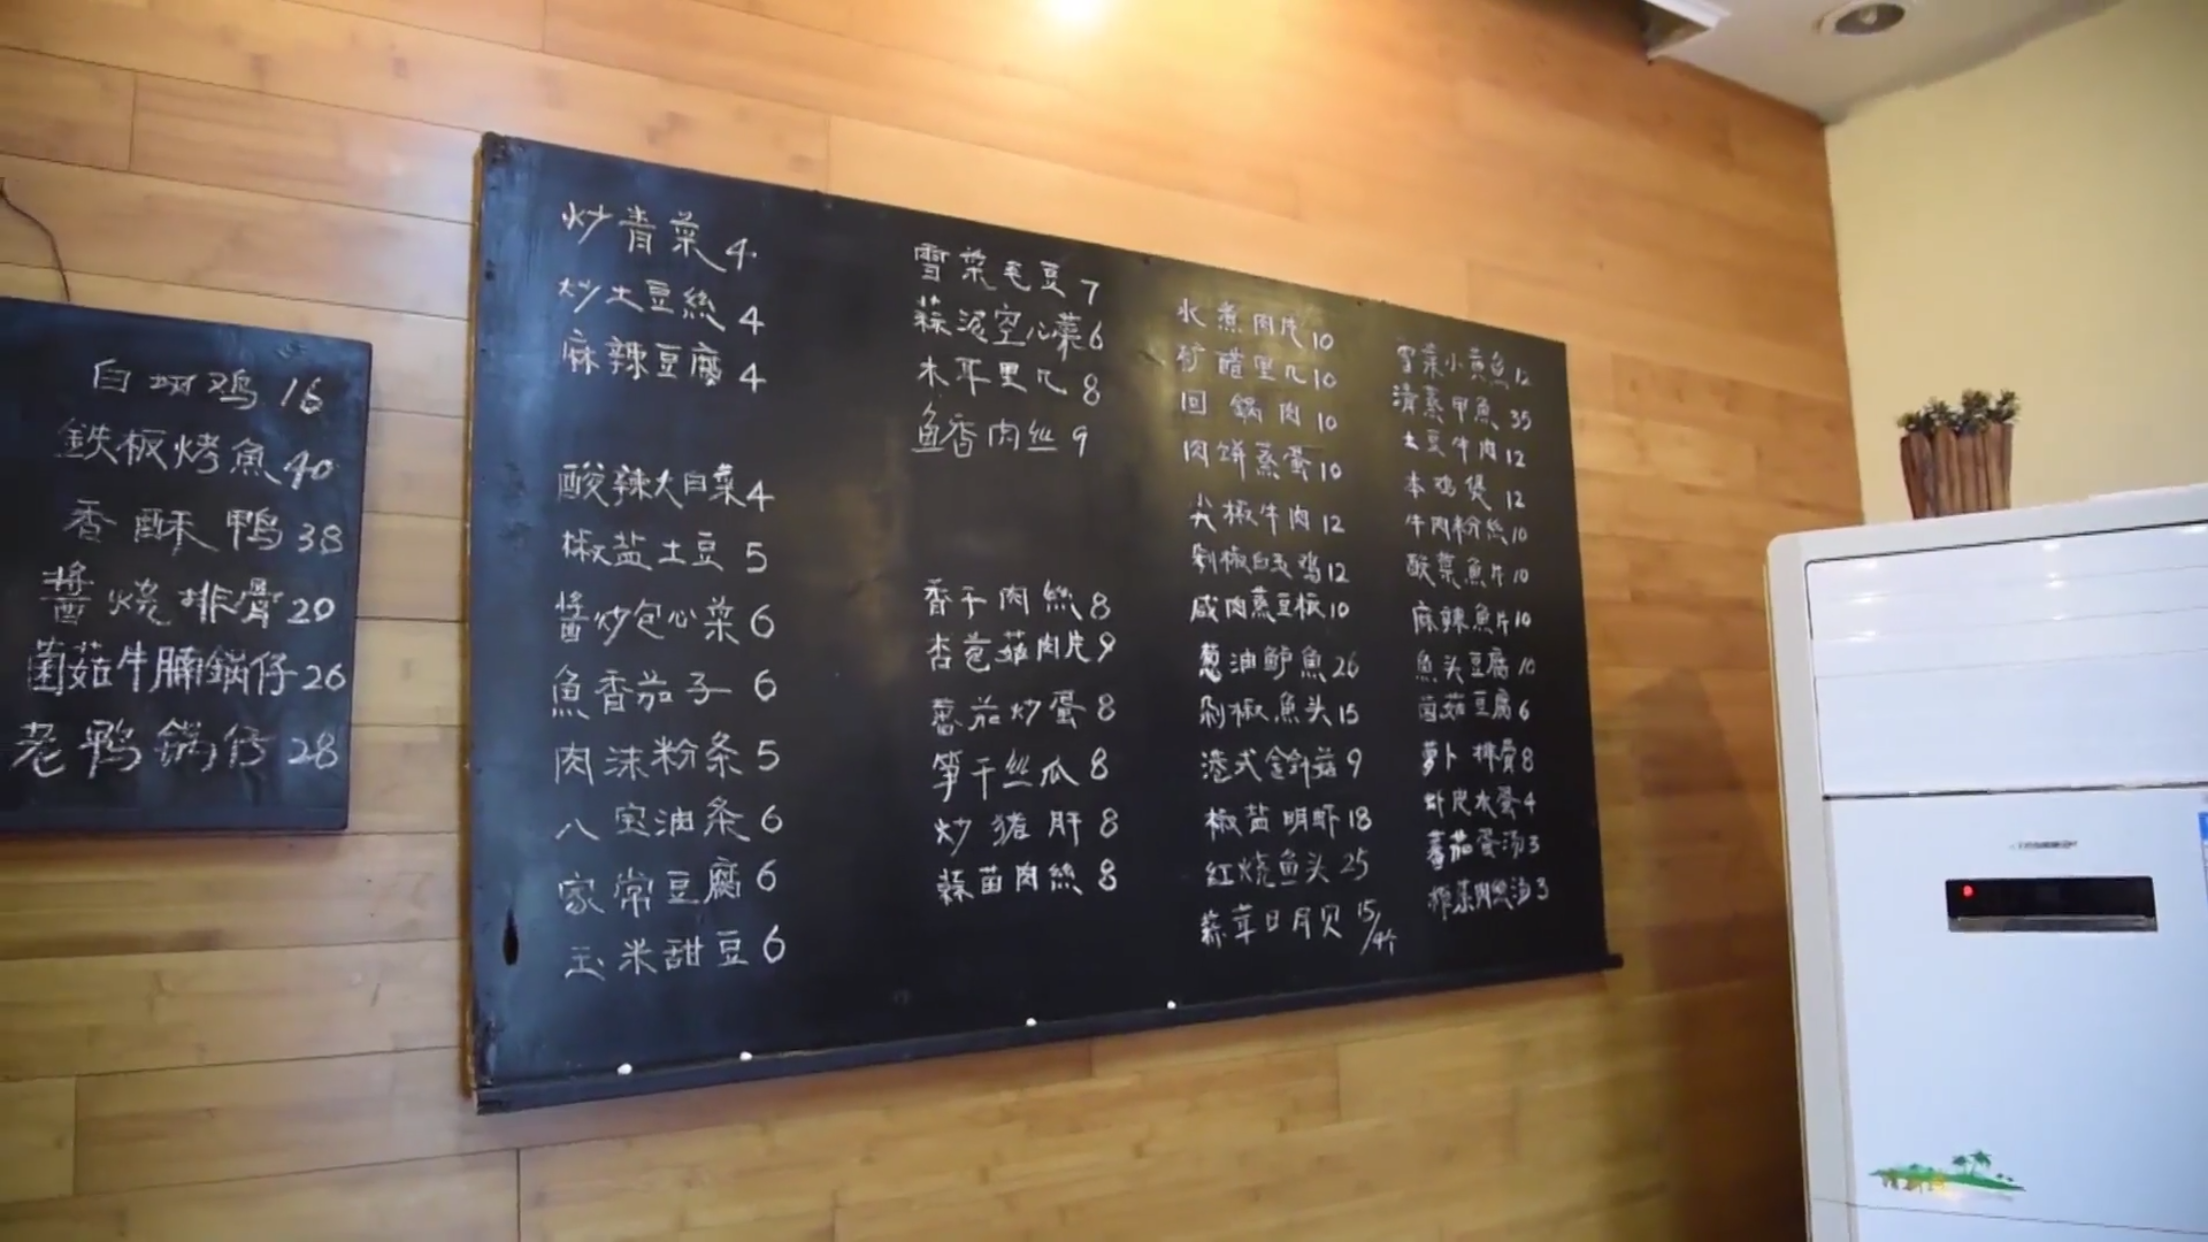 白斩鸡 16
鉄板烤魚 40
香酥鸭 38
醬烧排骨 20
菌菇牛腩鍋仔 26
老鸭鍋仔 28
炒青菜 4
炒土豆絲 4
麻辣豆腐 4
酸辣大白菜 4
椒盐土豆 5
醬炒包心菜 6
魚香茄子 6
肉沫粉条 5
八宝油条 6
家常豆腐 6
玉米甜豆 6
雪菜毛豆 7
蒜泥空心菜 6
木耳里几 8
鱼香肉丝 9
香干肉絲 8
杏苞菇肉片 9
蕃茄炒蛋 8
笋干丝瓜 8
炒猪肝 8
蒜苗肉絲 8
水煮肉片 10
醋里几 10
回鍋肉 10
肉饼蒸蛋 10
尖椒牛肉 12
剁椒白玉鸡 12
咸肉蒸豆板 10
葱油鲈魚 26
剁椒魚头 15
港式金針菇 9
椒盐明虾 18
红烧鱼头 25
蒜茸日月贝 15/4个
雪菜小黄魚 12
清蒸甲魚 35
土豆牛肉 12
本鸡煲 12
牛肉粉絲 10
酸菜魚片 10
麻辣魚片 10
魚头豆腐 10
菌菇豆腐 6
萝卜排骨 8
虾皮水蛋 4
蕃茄蛋汤 3
榨菜肉丝汤 3